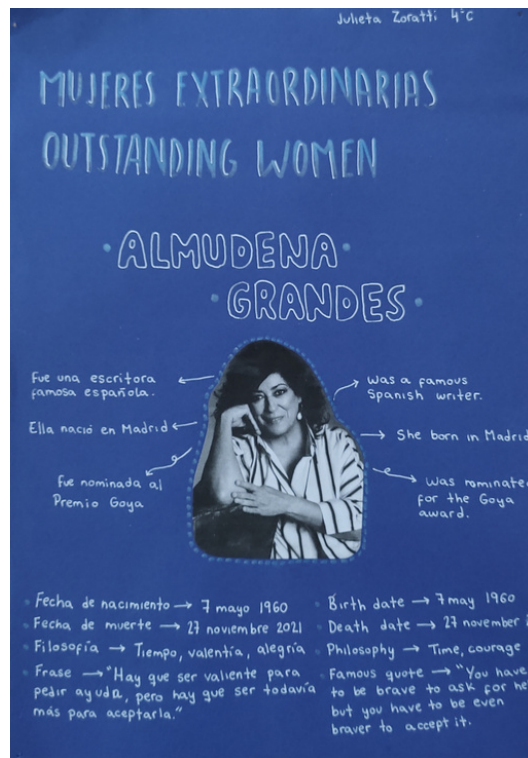 Julieta Zoratti 4°C
MUJERES EXTRAORDINARIAS
OUTSTANDING WOMEN
• ALMUDENA •
• GRANDES •
Fue una escritora
famosa española.
Ella nació en Madrid
Fue nominada al
Premio Goya
Was a famous
Spanish writer.
She born in Madrid
Was nominate
for the Goya
award.
• Fecha de nacimiento → 7 mayo 1960
• Fecha de muerte → 27 noviembre 2021
• Filosofía → Tiempo, valentía, alegría
• Frase → "Hay que ser valiente para
pedir ayuda, pero hay que ser todavía
más para aceptarla."
• Birth date → 7 may 1960
• Death date → 27 november
• Philosophy → Time, courage
• Famous quote → "You have
to be brave to ask for he
but you have to be even
braver to accept it.